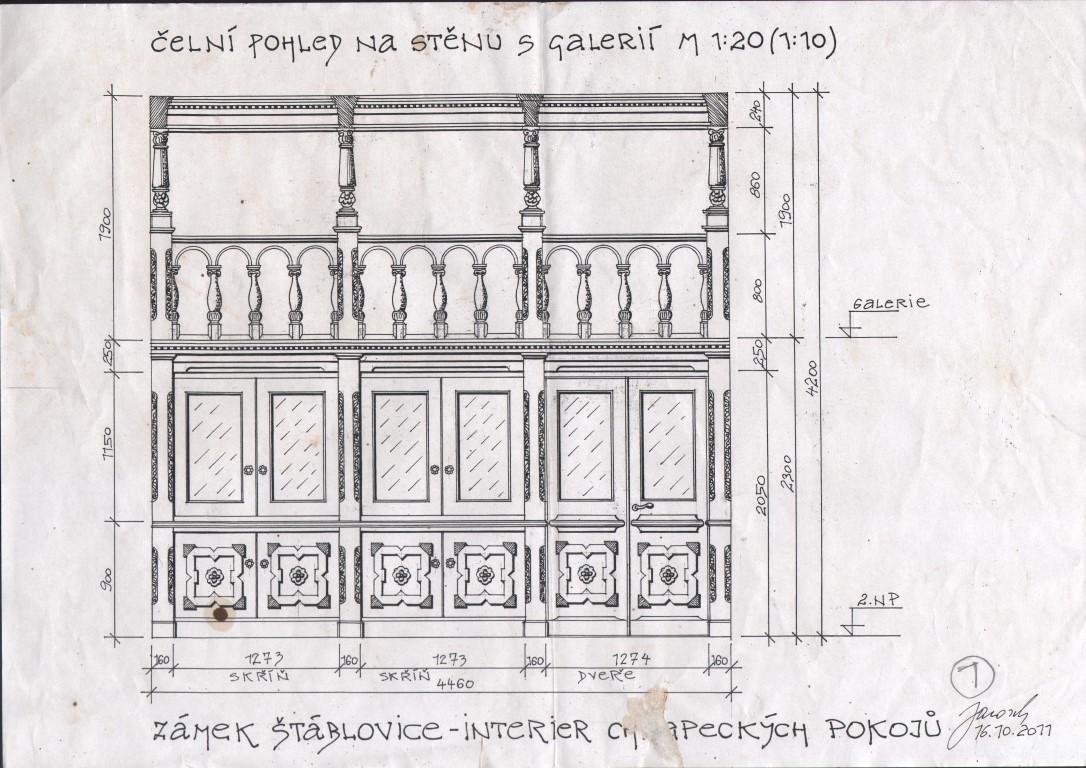 ČELNÍ POHLED NA STĚNU S GALERIÍ M 1:20 (1:10)
240
860
1900
1900
800
GALERIE
250
250
4200
1150
2300
2050
900
2.NP
160 1273 160 1273 160 1274 160
SKŘÍŇ SKŘÍŇ DVEŘE
4460
1
ZÁMEK ŠTÁBLOVICE - INTERIER POKOJŮ
16.10.2011